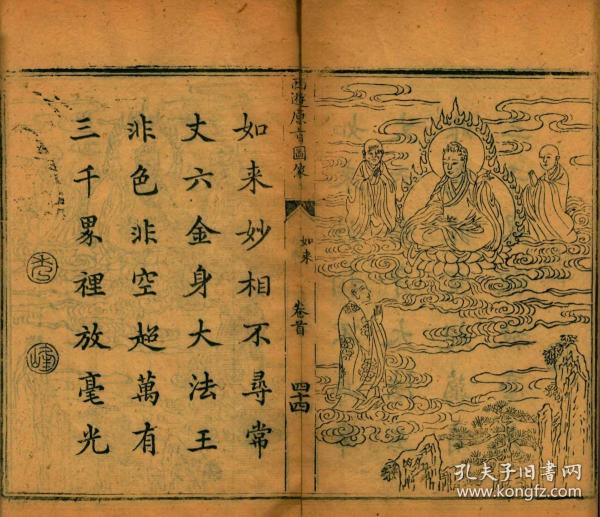 如来妙相不尋常
丈六金身大法王
非色非空超萬有
三千界裡放毫光
西遊原旨圖像
如来
卷首
四十四
孔夫子旧书网
www.kongfz.com